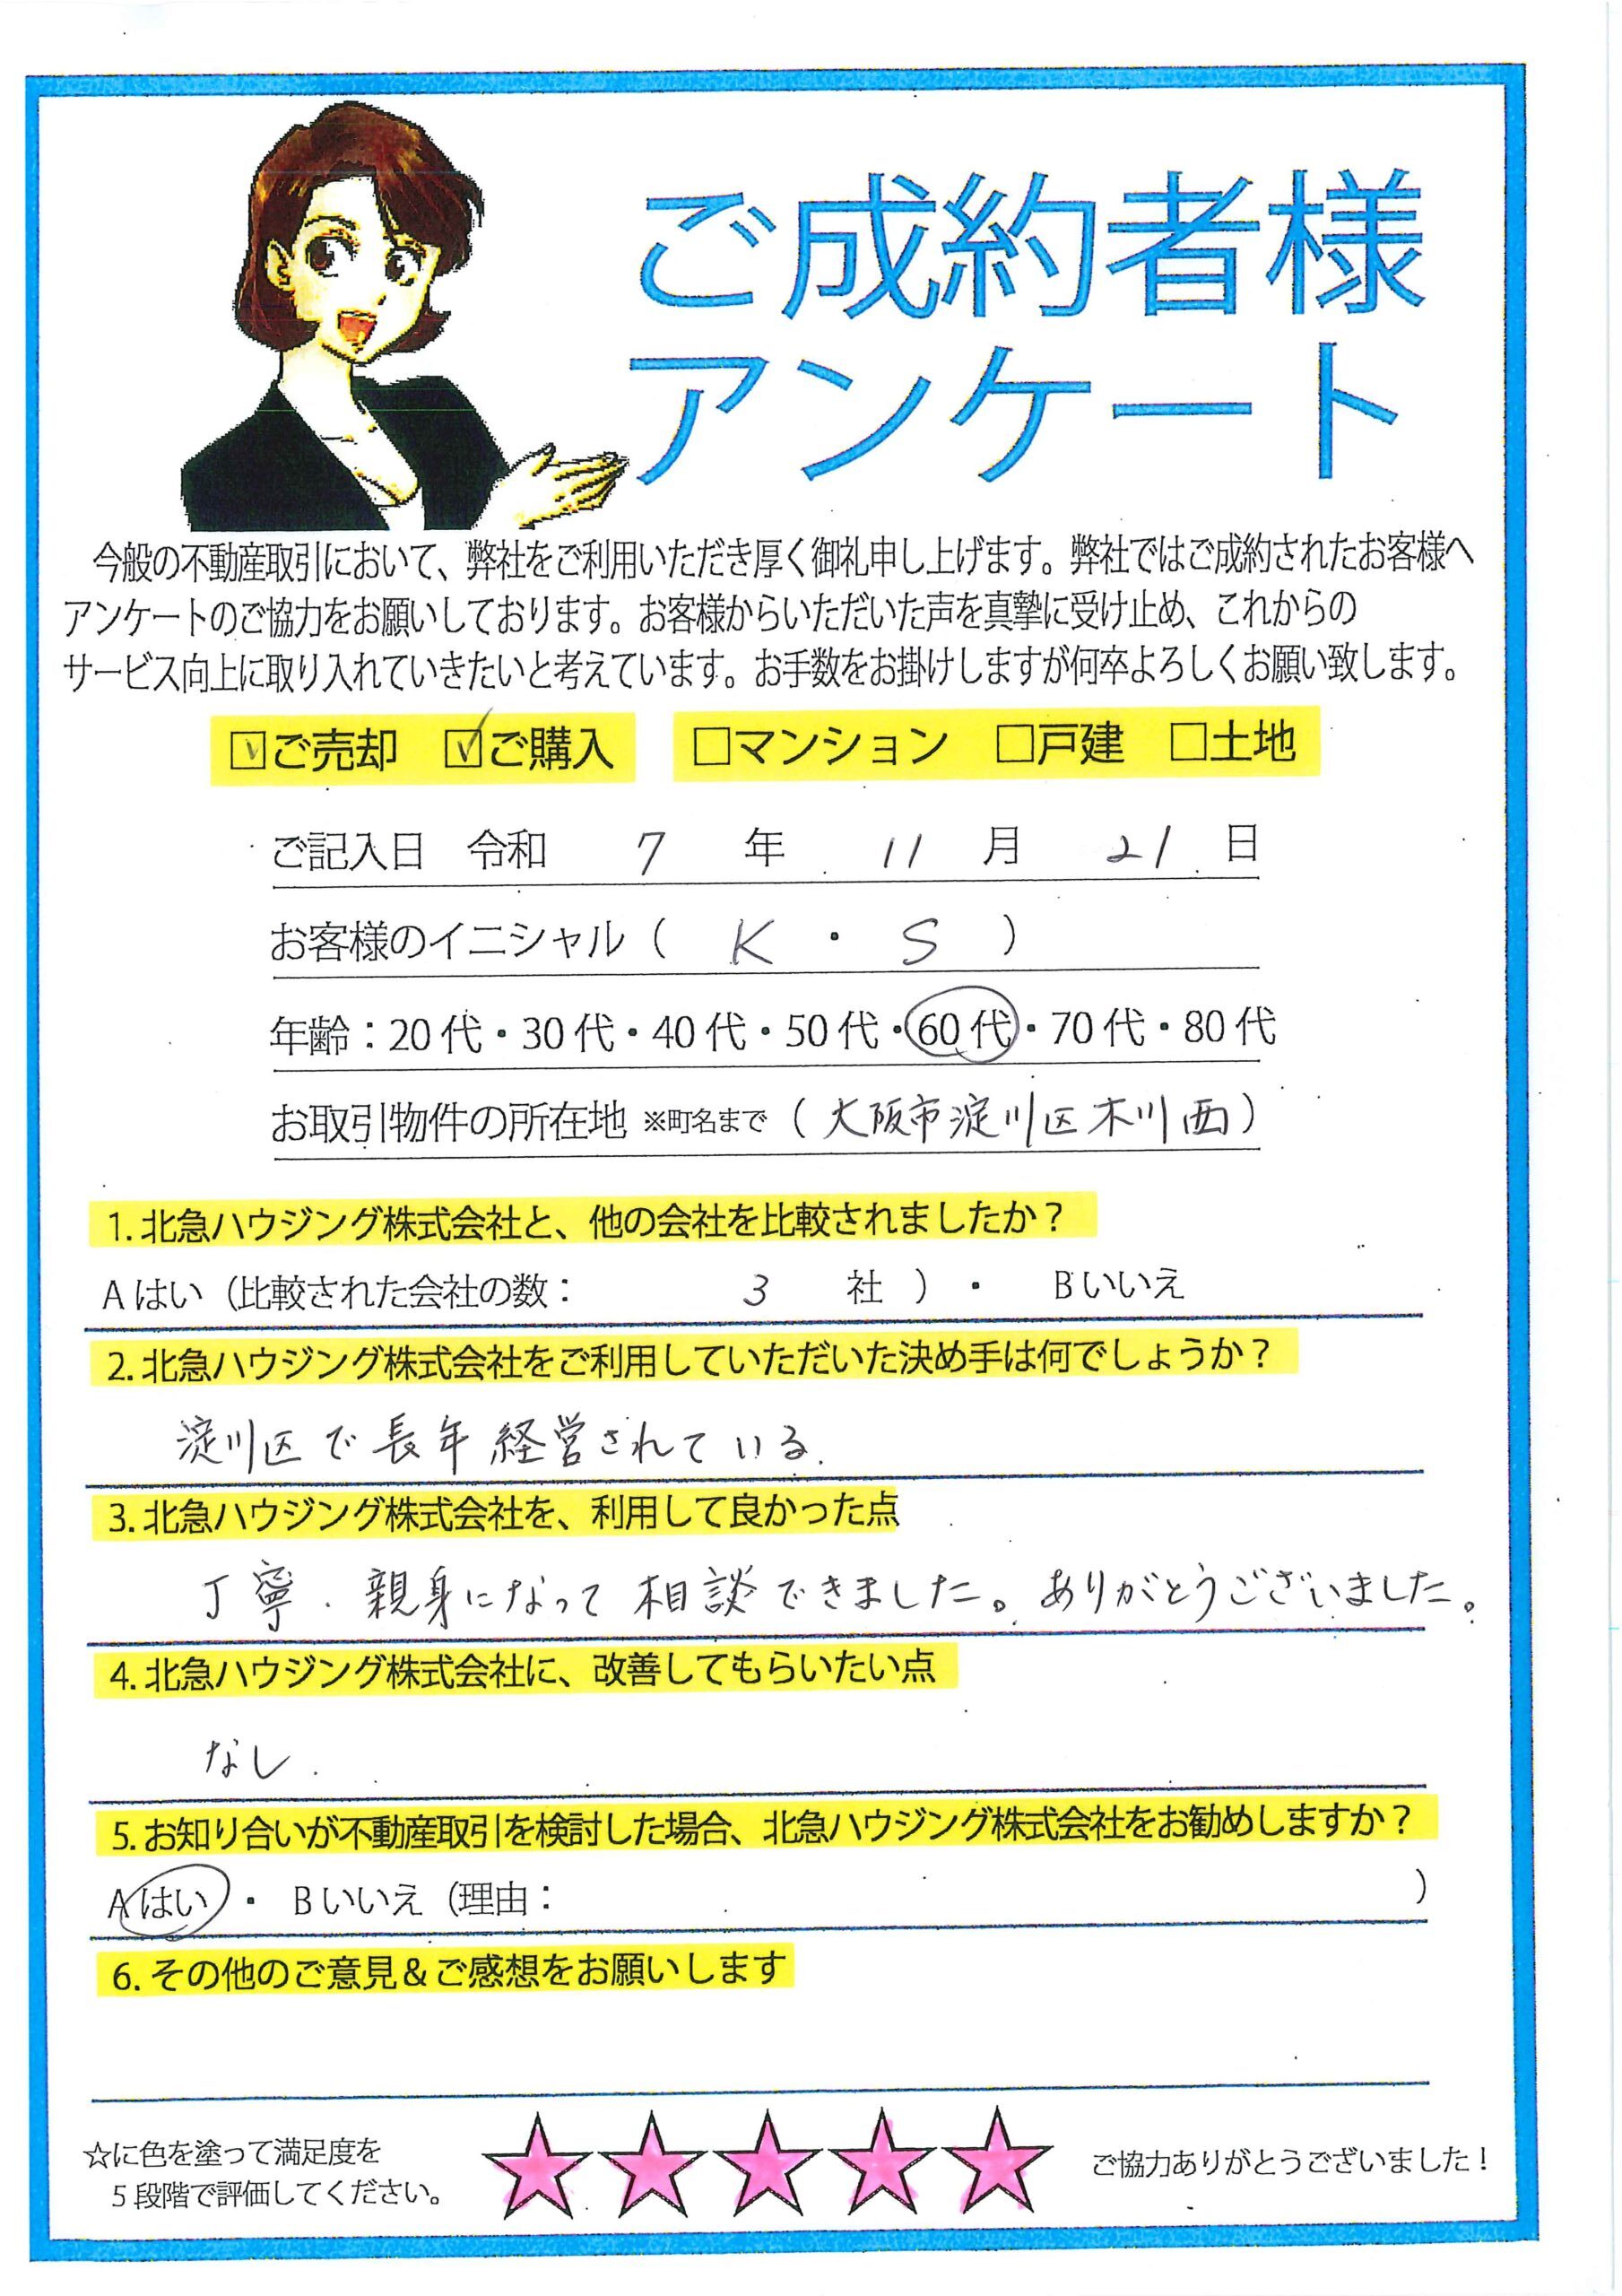 ご成約者様
アンケート
今般の不動産取引において、弊社をご利用いただき厚く御礼申し上げます。弊社ではご成約されたお客様へ
アンケートのご協力をお願いしております。お客様からいただいた声を真摯に受け止め、これからの
サービス向上に取り入れていきたいと考えています。お手数をお掛けしますが何卒よろしくお願い致します。
☑ご売却 ☑ご購入 □マンション □戸建 □土地
ご記入日 令和 7 年 11 月 21 日
お客様のイニシャル（ K ・ S ）
年齢：20代・30代・40代・50代・60代・70代・80代
お取引物件の所在地 ※町名まで（大阪市淀川区木川西）
1.北急ハウジング株式会社と、他の会社を比較されましたか？
Aはい（比較された会社の数： 3 社 ）・ Bいいえ
2.北急ハウジング株式会社をご利用していただいた決め手は何でしょうか？
淀川区で長年経営されている.
3.北急ハウジング株式会社を、利用して良かった点
丁寧.親身になって相談できました。ありがとうございました。
4.北急ハウジング株式会社に、改善してもらいたい点
なし.
5.お知り合いが不動産取引を検討した場合、北急ハウジング株式会社をお勧めしますか？
Aはい ・ Bいいえ（理由： ）
6.その他のご意見＆ご感想をお願いします
☆に色を塗って満足度を
5段階で評価してください。
ご協力ありがとうございました！